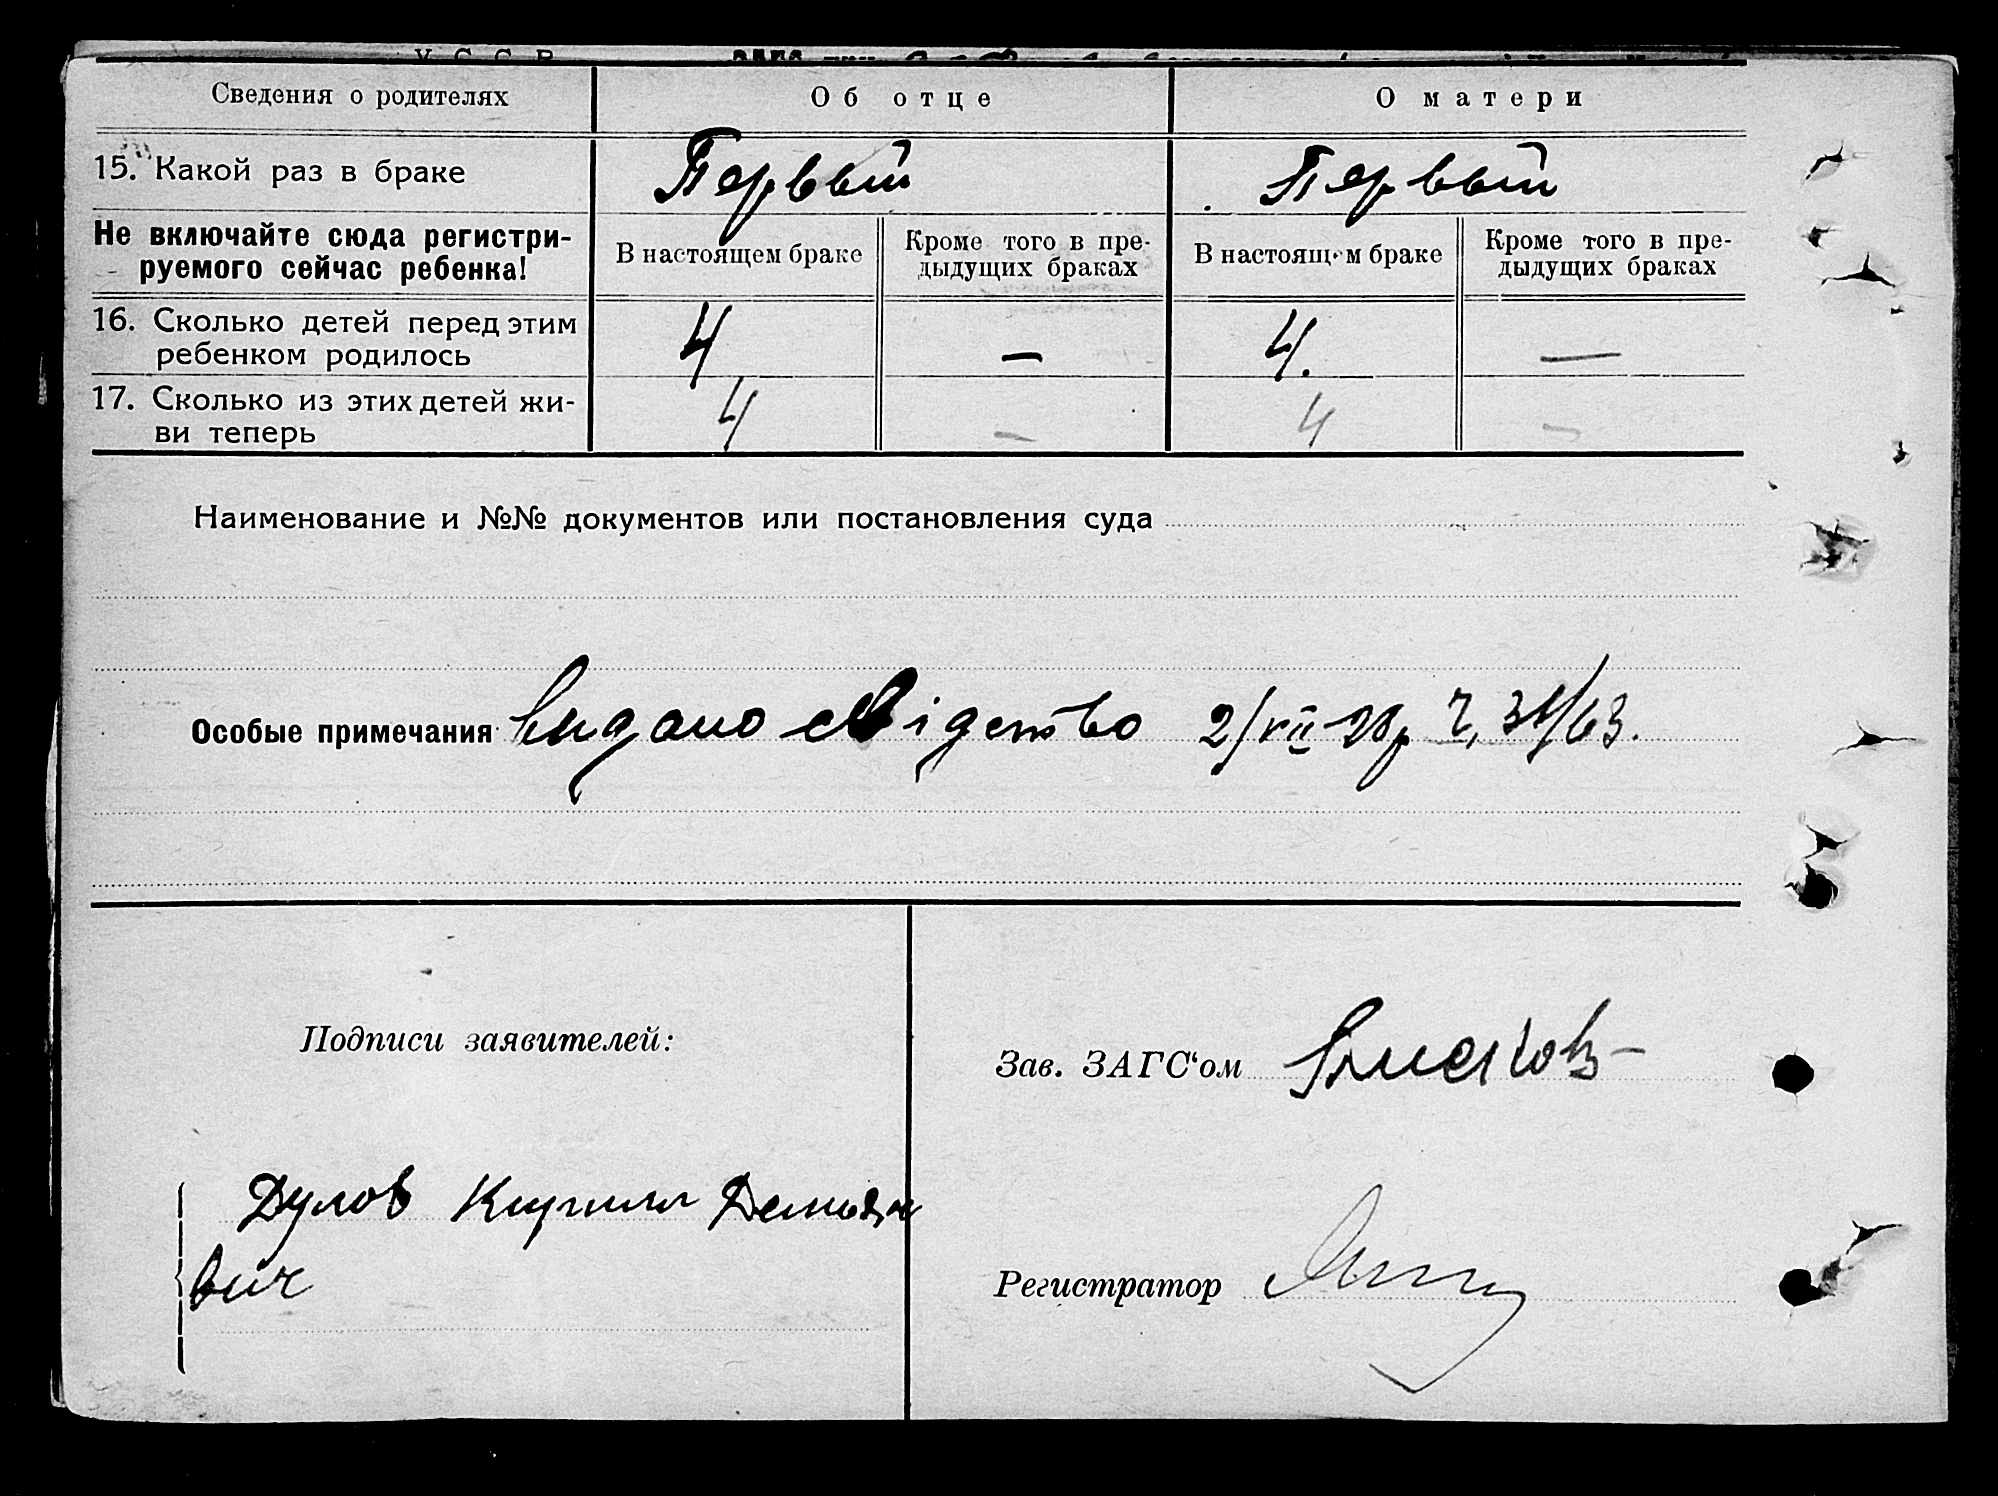 У С С Р
Сведения о родителях Об отце О матери
15. Какой раз в браке Первый Первый
Не включайте сюда регистри-
руемого сейчас ребенка!
В настоящем браке Кроме того в пре-
дыдущих браках
В настоящем браке Кроме того в пре-
дыдущих браках
16. Сколько детей перед этим
ребенком родилось 4 — 4. —
17. Сколько из этих детей жи-
ви теперь 4 - 4 -
Наименование и №№ документов или постановления суда
Особые примечания видано свідетво 2/VII
Подписи заявителей:
Зав. ЗАГС‘ом
Дулов Кирилл Демьян
вич
Регистратор